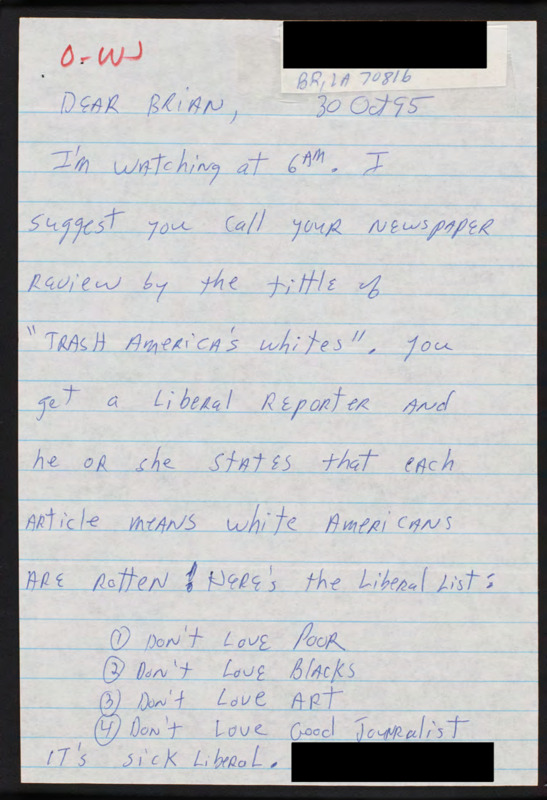 O-W
BR, LA 70816
DEAR BRIAN, 30 Oct 95
I'm watching at 6AM. I
suggest you call your NEWSPAPER
Review by the tittle of
"TRASH America's whites". you
get a Liberal REPORTER AND
he OR she STATES that EACH
ARticle mEANS white AMERICANS
ARE ROttEN! HERE'S the Liberal List:
① DON't LOVE POOR
② DON't LOVE BLACKS
③ DON't LOVE ART
④ DON't LOVE Good Journalist
IT's sick Liberal.